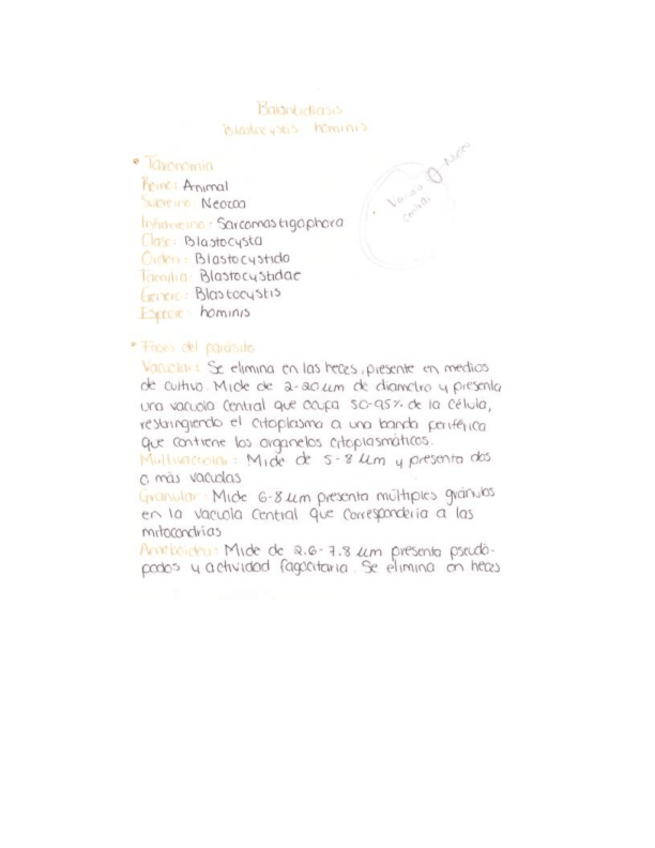 Balantidiasis
Blastocystis hominis
• Taxonomia
Reino: Animal
Subreino: Neozoa
Infrareino: Sarcomastigophora
Clase: Blastocysta
Orden: Blastocystida
Familia: Blastocystidae
Genero: Blastocystis
Especie: hominis
Vacuola central
Núcleo
• Fases del parásito
Vacuolar: Se elimina en las heces, presente en medios
de cultivo. Mide de 2-20 um de diametro y presenta
una vacuola central que ocupa 50-95% de la célula,
restringiendo el citoplasma a una banda periférica
que contiene los organelos citoplasmáticos.
Multivacuolar: Mide de 5-8 um y presenta dos
o más vacuolas
Granular: Mide 6-8 um presenta múltiples gránulos
en la vacuola central que corresponderia a las
mitocondrias
Ameboidea: Mide de 2.6-7.8 um presenta pseudo-
podos y actividad fagocitaria. Se elimina en heces